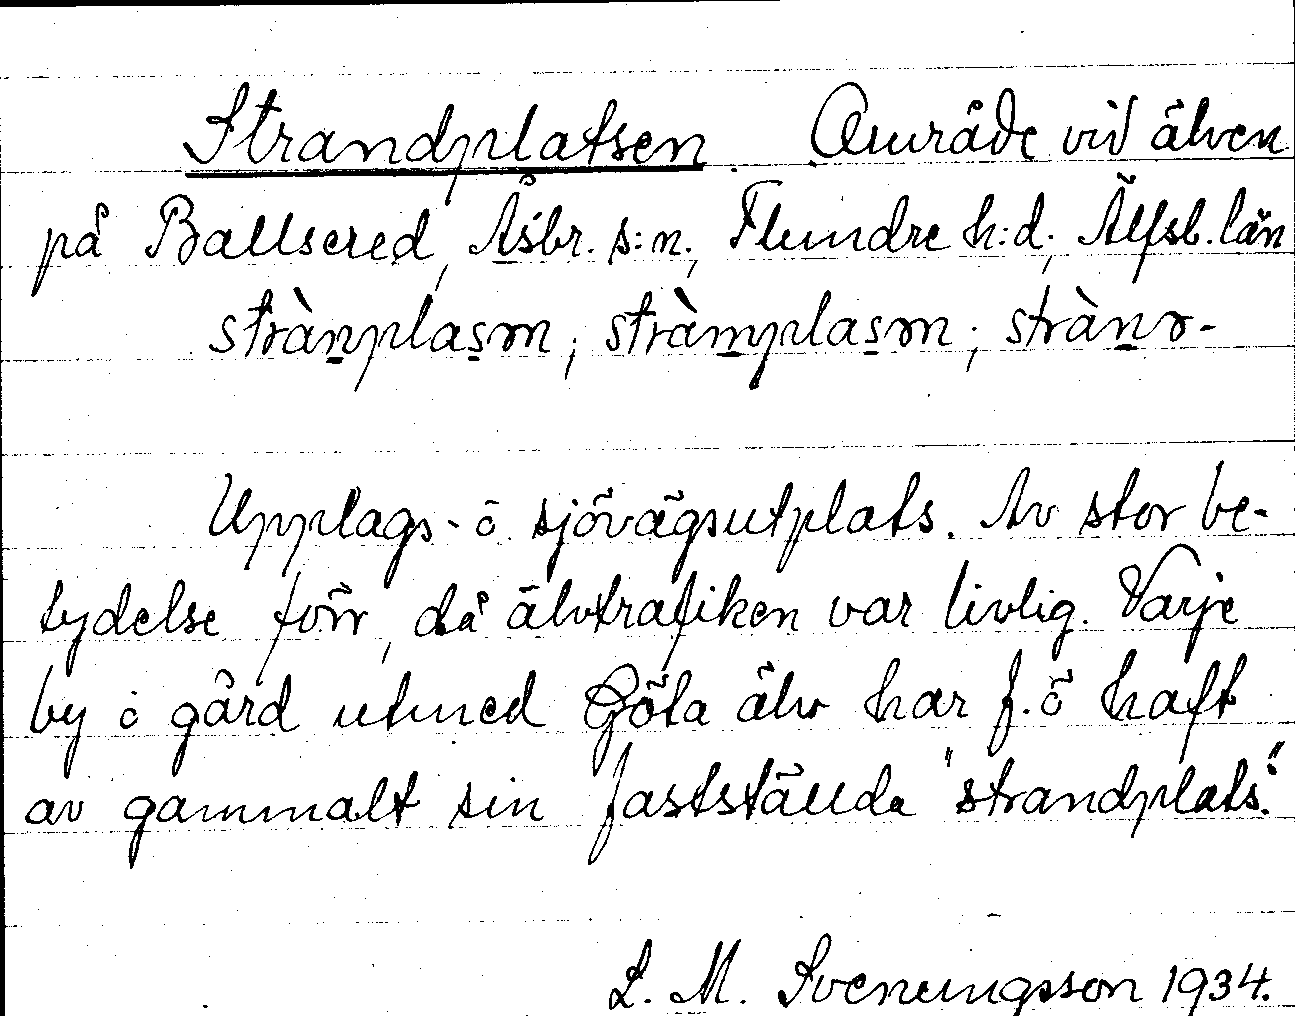 Strandplatsen. Område vid älven
på Ballsered, Åsbr. s:n, Flundre h:d, Älfsb. län
stràn̲plas̲ɷn; stràm̲plas̲ɷn; stràn̲ɷ-
Upplags- ō sjövägsutplats. Av stor be-
tydelse förr, då älvtrafiken var livlig. Varje
by ō gård utmed Göta älv har f. ö haft
av gammalt sin fastställda "strandplats".
L. M. Svenungsson 1934.